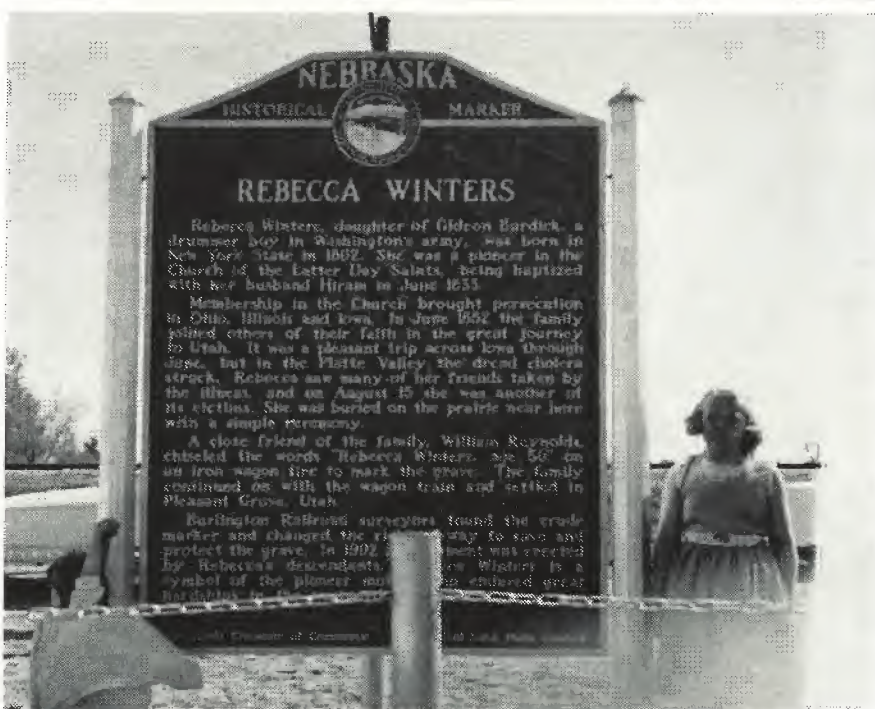 NEBRASKA
HISTORICAL MARKER
REBECCA WINTERS
Rebecca Winters, daughter of Gideon Burdick, a
drummer boy in Washington's army, was born in
New York State in 1802. She was a pioneer in the
Church of the Latter Day Saints, being baptized
with her husband Hiram in June 1833.
Membership in the Church brought persecution
in Ohio, Illinois and Iowa. In June 1852 the family
joined others of their faith in the great journey
to Utah. It was a pleasant trip across Iowa through
June, but in the Platte Valley the dread cholera
struck. Rebecca saw many of her friends taken by
the illness, and on August 15 she was another of
its victims. She was buried on the prairie near here
with a simple ceremony.
A close friend of the family, William Reynolds,
chiseled the words "Rebecca Winters, age 50" on
an iron wagon tire to mark the grave. The family
continued on with the wagon train and settled in
Pleasant Grove, Utah.
Burlington Railroad surveyors found the crude
marker and changed the way to save and
protect the grave. In 1902 was erected
by Rebecca's descendants. Winters is a
symbol of the pioneer endured great
hardships in
of Commerce